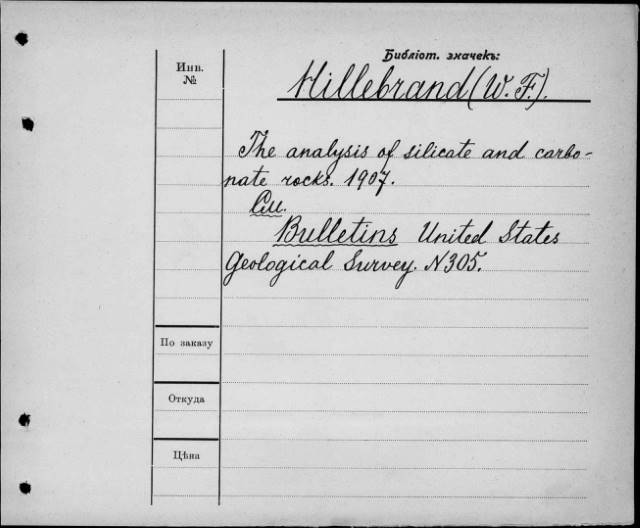 Библіот. значекъ:
Инв.
№
Hillebrand (W. F.).
The analysis of silicate and carbo-
nate rocks. 1907.
См.
Bulletins United States
Geological Survey. N305.
По заказу
Откуда
Цѣна